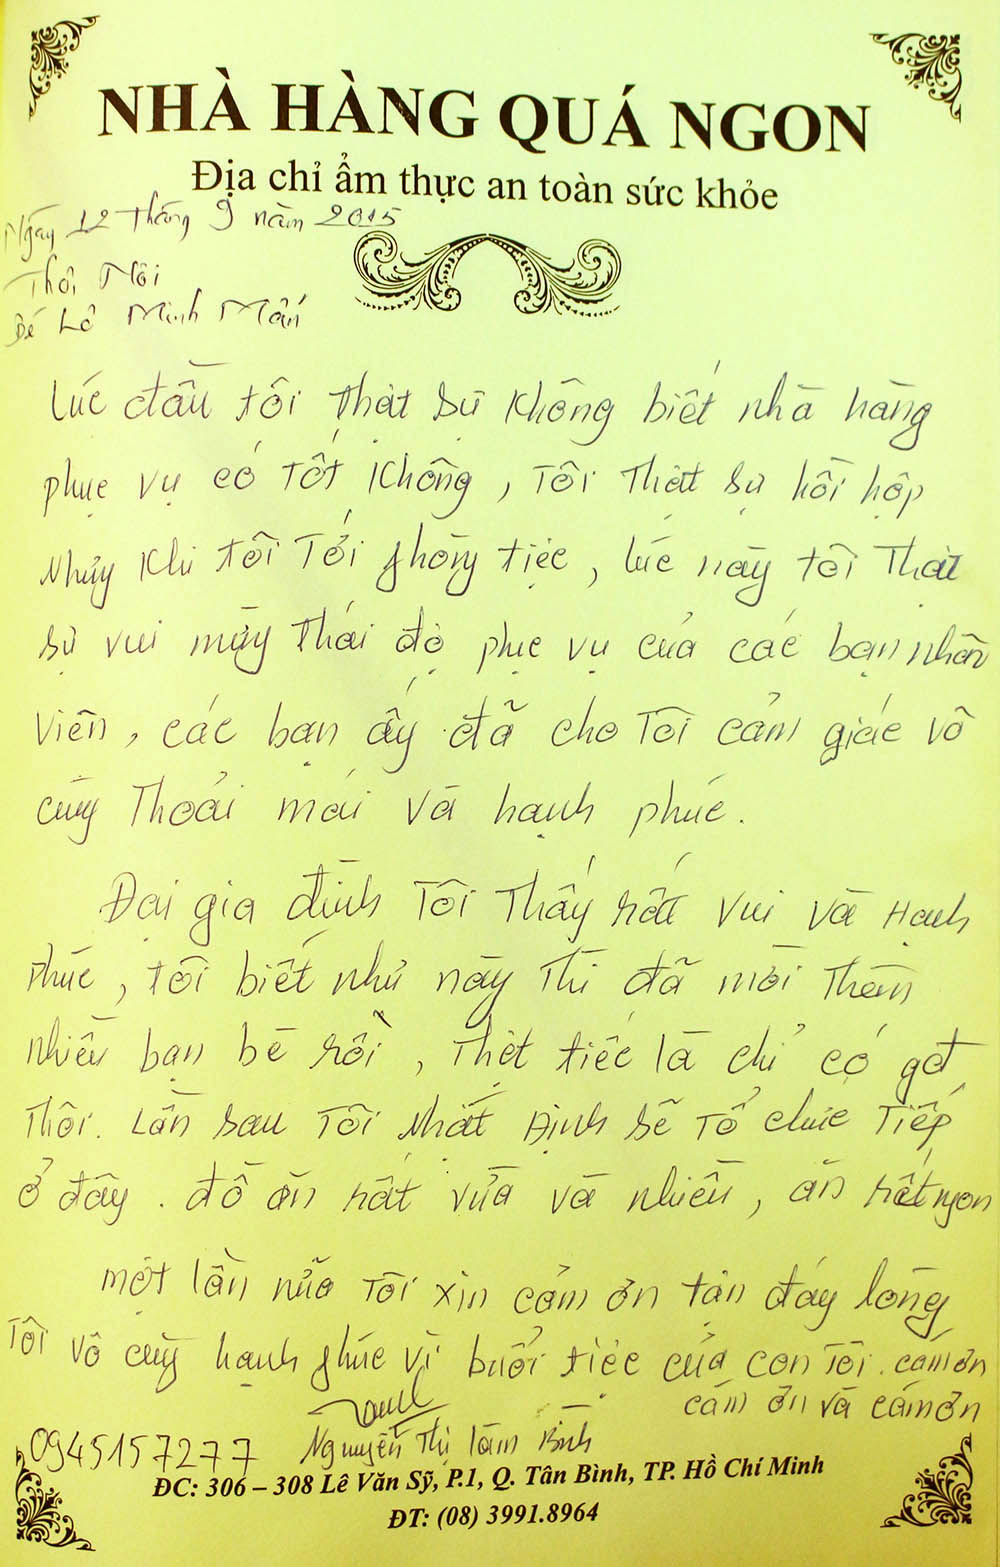 NHÀ HÀNG QUÁ NGON
Địa chỉ ẩm thực an toàn sức khỏe
Ngày 12 tháng 9 năm 2015
Thôi Nôi
Bé Lô Minh Mẫn
Lúc đầu tôi thật sự không biết nhà hàng
phục vụ có tốt không, tôi thật sự hồi hộp
Nhưng khi tôi tới phòng tiệc, lúc này tôi thật
sự vui mừng thái độ phục vụ của các bạn nhân
viên, các bạn ấy đã cho tôi cảm giác vô
cùng thoải mái và hạnh phúc.
Đại gia đình tôi thấy rất vui và hạnh
phúc, tôi biết như này thì đã mời thêm
nhiều bạn bè rồi, thật tiếc là chỉ có
thôi. Lần sau tôi nhất định sẽ tổ chức tiếp
ở đây. đồ ăn rất vừa và nhiều, ăn rất ngon
một lần nữa tôi xin cảm ơn tận đáy lòng
Tôi vô cùng hạnh phúc vì buổi tiệc của con tôi. cám ơn
cám ơn và cám ơn
0945157277 Nguyễn Thị Lâm Bình
ĐC: 306 – 308 Lê Văn Sỹ, P.1, Q. Tân Bình, TP. Hồ Chí Minh
ĐT: (08) 3991.8964